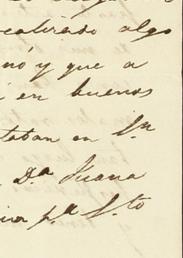 realizado algo
nó y que a
i en buenos
taban en Sn
Da Juana
pa Sto